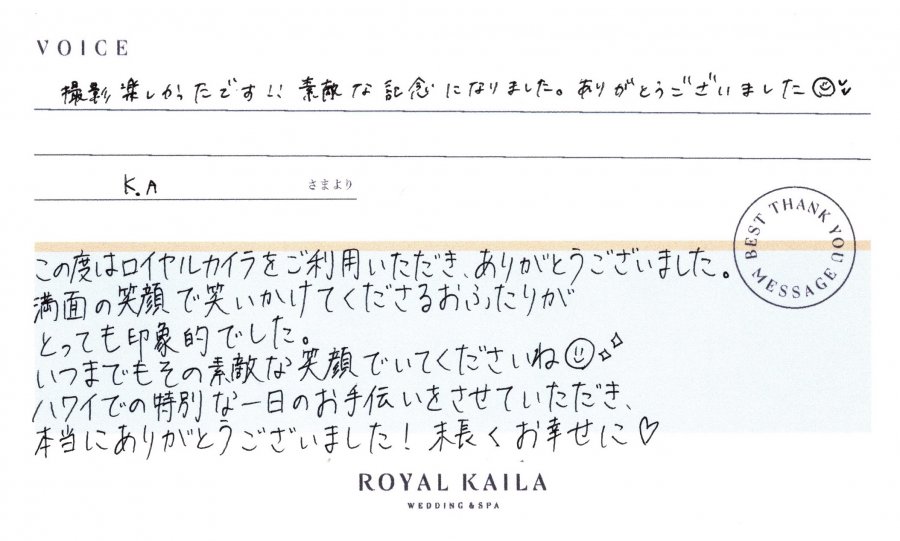 VOICE
撮影楽しかったです!! 素敵な記念になりました。ありがとうございました
K.A さまより
BEST THANK YOU MESSAGE
この度はロイヤルカイラをご利用いただき、ありがとうございました。
満面の笑顔で笑いかけてくださるおふたりが
とっても印象的でした。
いつまでもその素敵な笑顔でいてくださいね
ハワイでの特別な一日のお手伝いをさせていただき、
本当にありがとうございました！末長くお幸せに♡
ROYAL KAILA
WEDDING & SPA